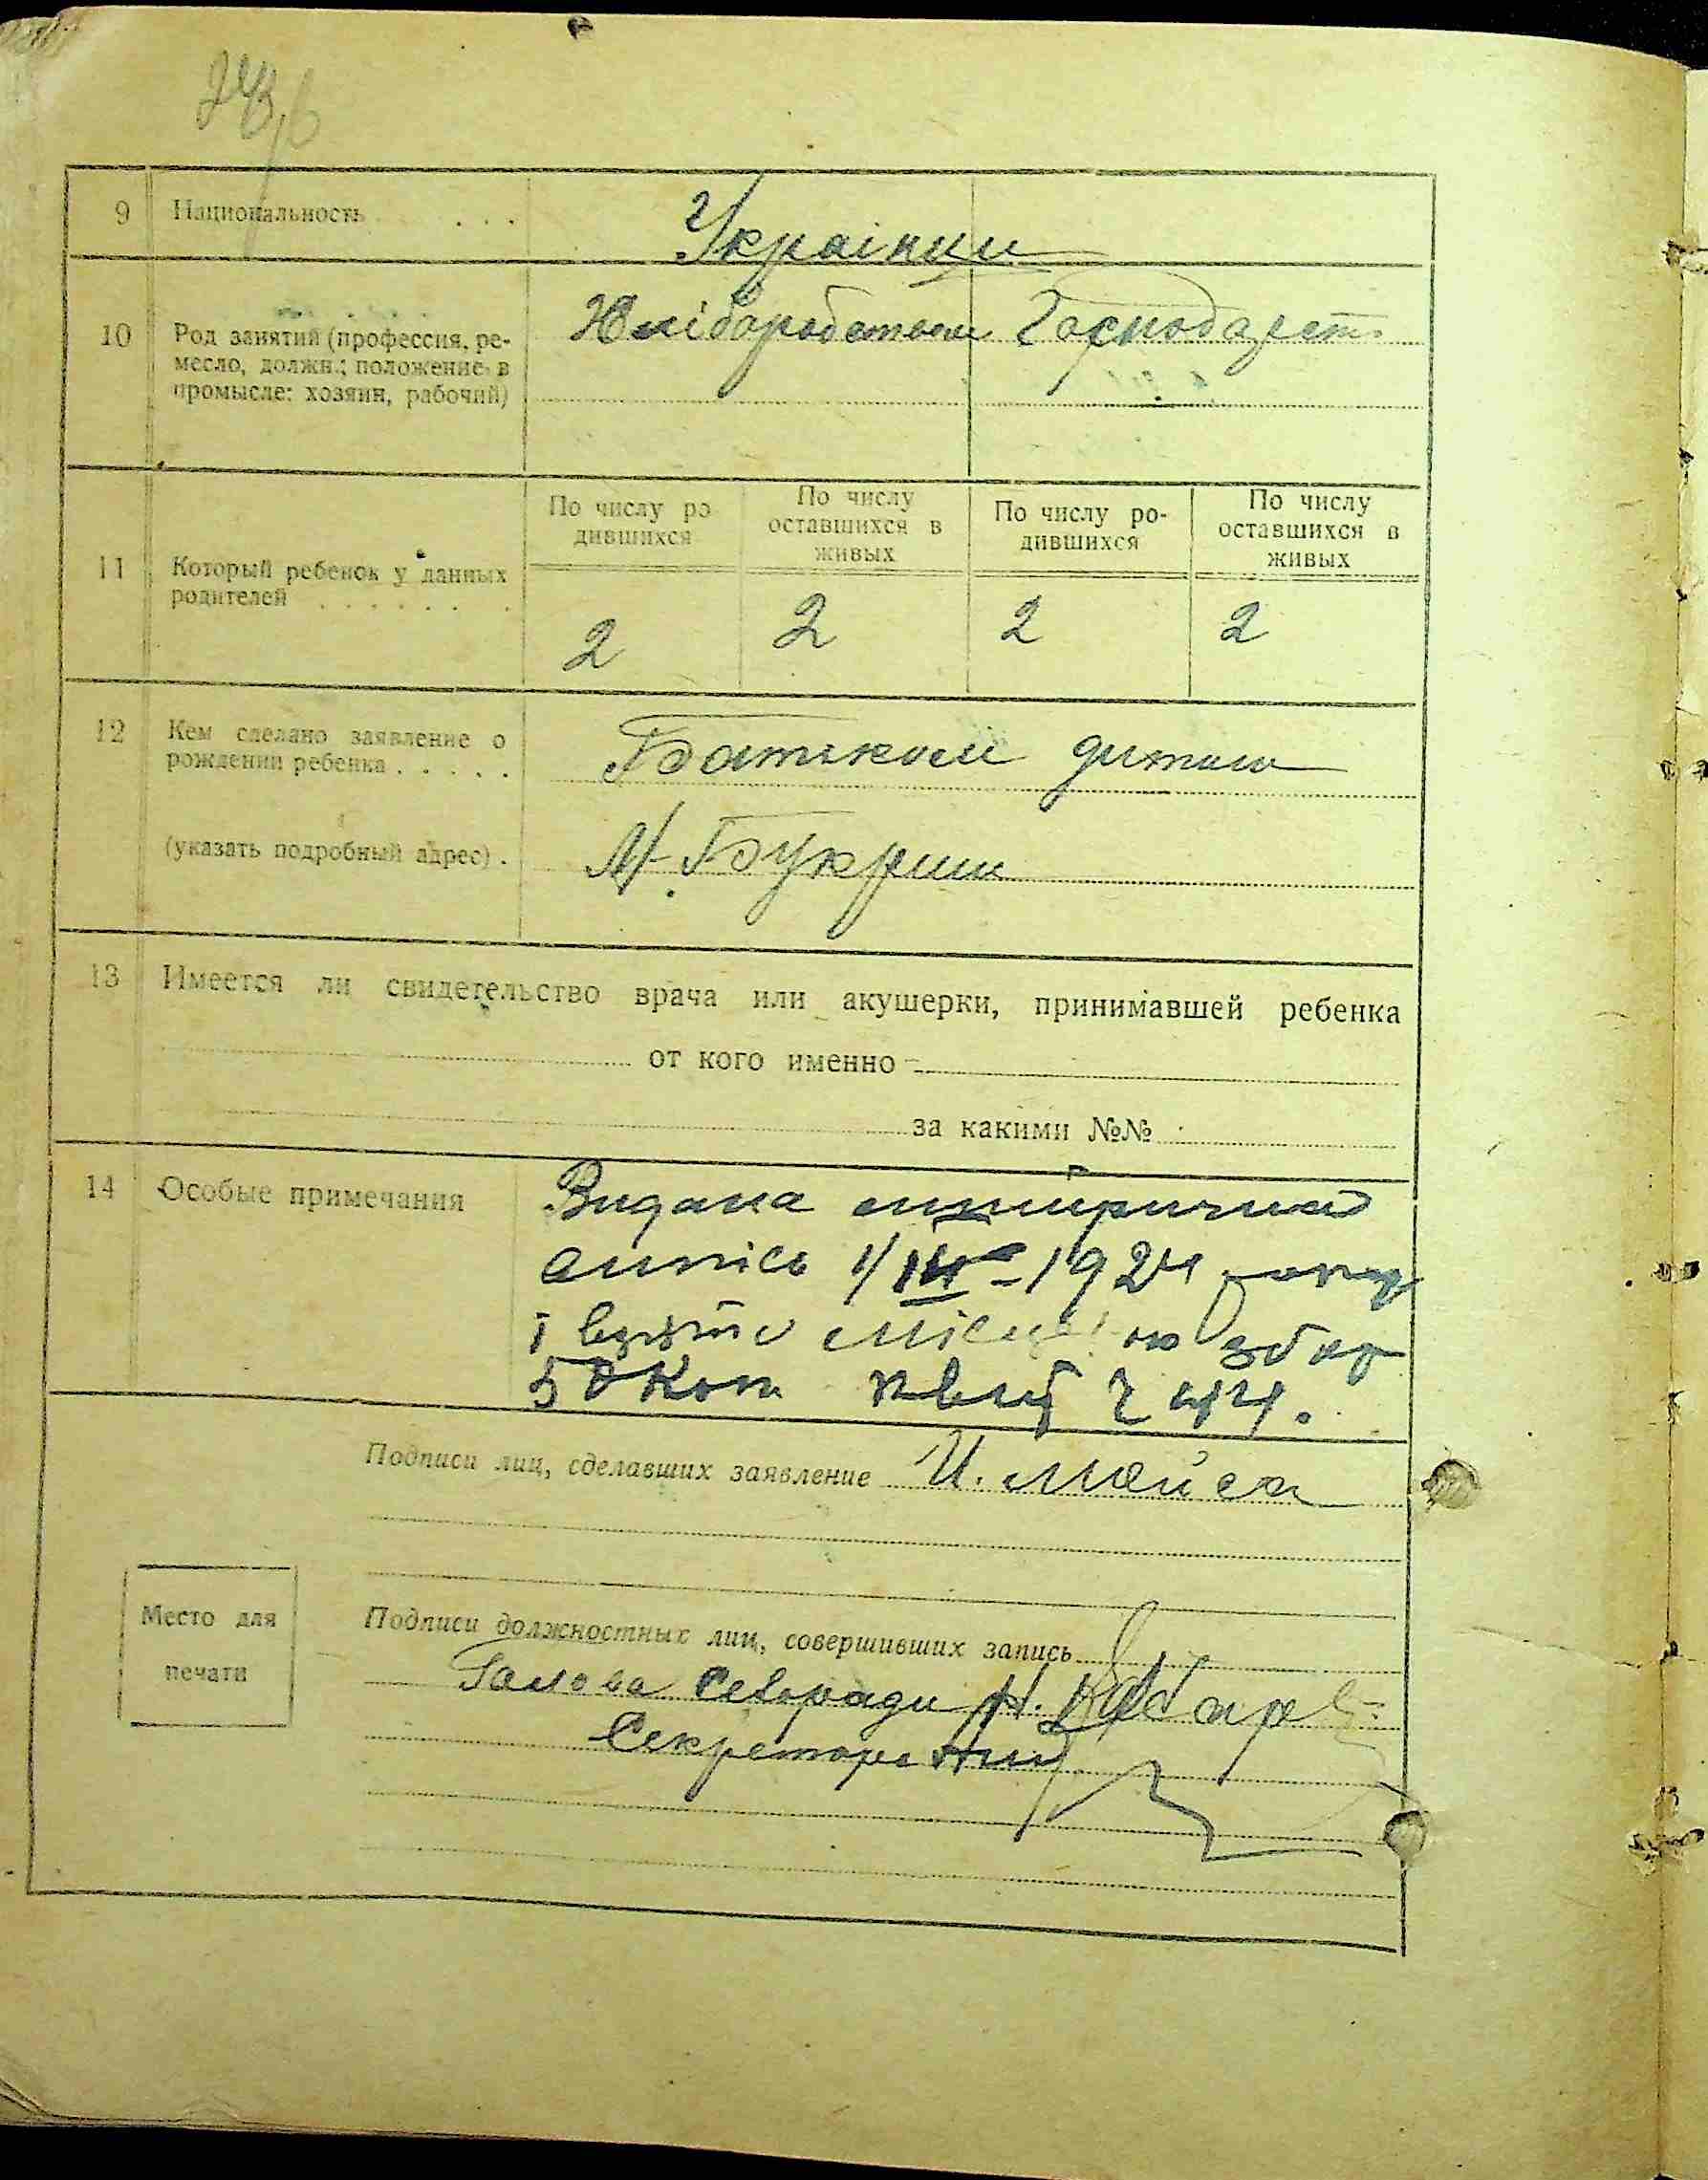 9 Национальность . . .
Українци
10 Род занятий (профессия, ре-
месло, должн.; положение в
промысле: хозяин, рабочий)
Хліборобством Господарст.
11 Который ребенок у данных
родителей . . . . . . .
По числу ро
дившихся
По числу
оставшихся в
живых
По числу ро-
дившихся
По числу
оставшихся в
живых
2 2 2 2
12 Кем сделано заявление о
рождении ребенка . . . . .
Батьком дитини
(указать подробный адрес) .
М. Букрин
13 Имеется ли свидетельство врача или акушерки, принимавшей ребенка
от кого именно
за какими №№
14 Особые примечания
Видана метрична
1924 року
і взято збір
50 коп
Подписи лиц, сделавших заявление И.
Место для
печати
Подписи должностных лиц, совершивших запись
Голова Сельради Н.
Секретарь